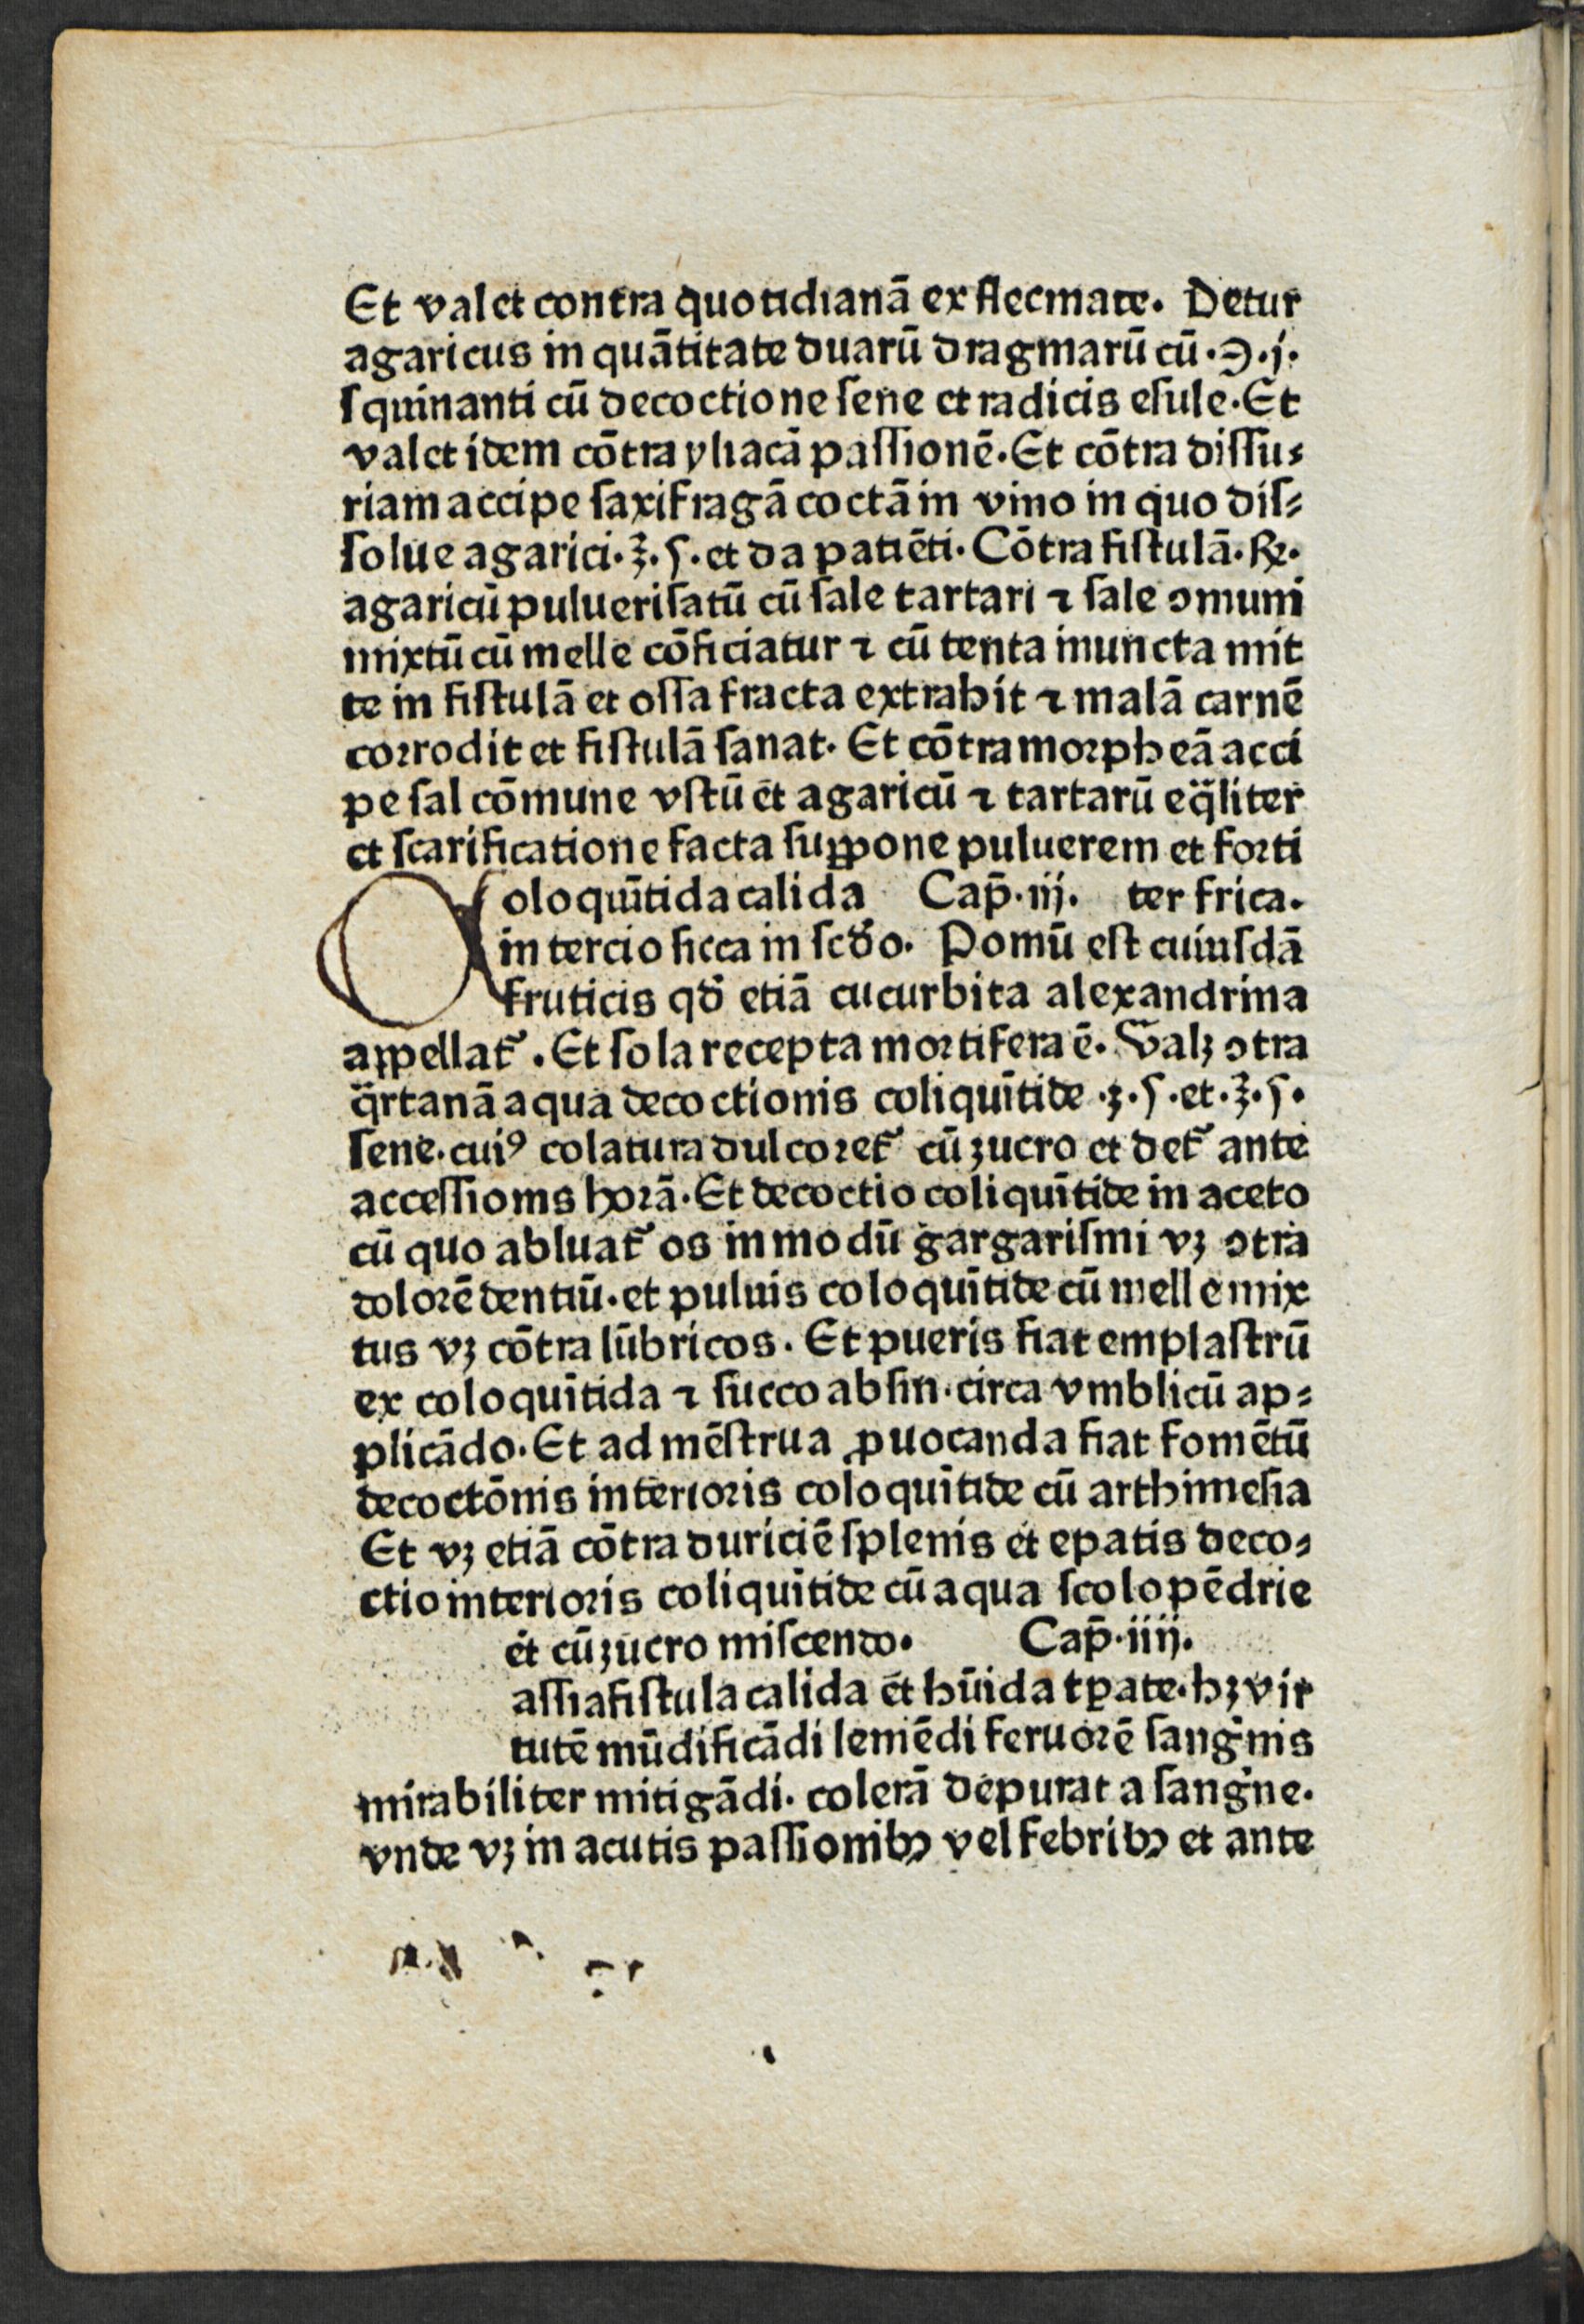 Et valet contra quotidianā ex flecmate. Detur
agaricus in quātitate duarū dragmarū cū .℈.j.
squinanti cū decoctione sene et radicis esule. Et
valet idem cōtra yliacā passionē. Et cōtra dissu⸗
riam accipe saxifragā coctā in vino in quo dis⸗
solue agarici. ʒ. ſ. et da patiēti. Cōtra fistulā. ℞.
agaricū puluerisatū cū sale tartari ⁊ sale ɔmuni
mixtū cū melle cōficiatur ⁊ cū tenta inuncta mit
te in fistulā et ossa fracta extrahit ⁊ malā carnē
corrodit et fistulā sanat. Et cōtra morpheā acci
pe sal cōmune vstū et agaricū ⁊ tartarū eq̄liter
et scarificatione facta suppone puluerem et forti
Coloquītida calida Cap̄. iij. ter frica.
in tercio sicca in scd̄o. Pomū est cuiusdā
fruticis qd̄ etiā cucurbita alexandrina
appellat᷑. Et sola recepta mortifera ē. Valꝫ ɔtra
q̄rtanā aqua decoctionis coliquītide .ʒ. ſ. et .ʒ. ſ.
sene. cuiꝰ colatura dulcoret᷑ cū zucro et det᷑ ante
accessionis horā. Et decoctio coliquītide in aceto
cū quo abluat᷑ os in modū gargarismi vꝫ ɔtra
dolorē dentiū. et puluis coloquītide cū melle mix
tus vꝫ cōtra lūbricos. Et pueris fiat emplastrū
ex coloquītida ⁊ succo absin. circa vmblicū ap⸗
plicādo. Et ad mēstrua ꝓuocanda fiat fomētū
decoctōnis interioris coloquītide cū arthimesia
Et vꝫ etiā cōtra duriciē splenis et epatis deco⸗
ctio interioris coliquītide cū aqua scolopēdrie
et cū zucro miscendo. Cap̄. iiij.
assiafistula calida et hūida tꝑate. hꝫ vir
tutē mūdificādi leniēdi feruorē sangͥnis
mirabiliter mitigādi. colerā depurat a sangͥne.
vnde vꝫ in acutis passionibꝫ vel febribꝫ et ante